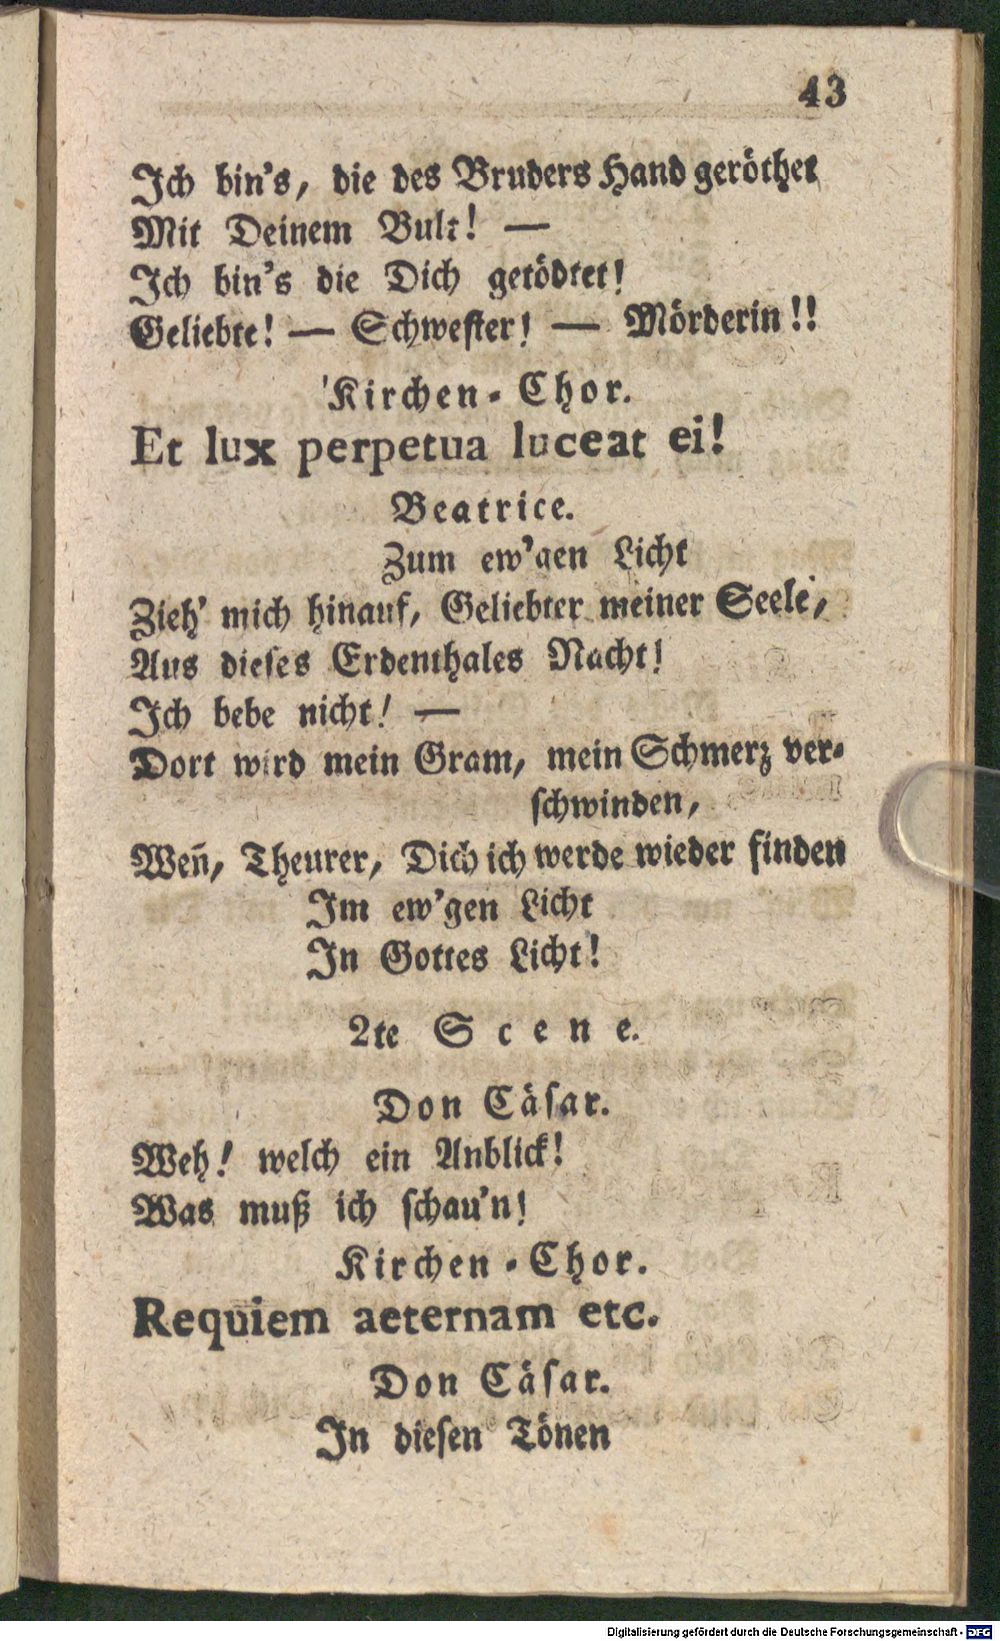 43
Ich bin's, die des Bruders Hand geröthet
Mit Deinem Bult! —
Ich bin's die Dich getödtet!
Geliebte! — Schwester! — Mörderin!!
Kirchen-Chor.
Et lux perpetua luceat ei!
Beatrice.
Zum ew'gen Licht
Zieh' mich hinauf, Geliebter meiner Seele,
Aus dieses Erdenthales Nacht!
Ich bebe nicht! —
Dort wird mein Gram, mein Schmerz ver-
schwinden,
Weñ, Theurer, Dich ich werde wieder finden
Im ew'gen Licht
In Gottes Licht!
2te Scene.
Don Cäsar.
Weh! welch ein Anblick!
Was muß ich schau'n!
Kirchen-Chor.
Requiem aeternam etc.
Don Cäsar.
In diesen Tönen
Digitalisierung gefördert durch die Deutsche Forschungsgemeinschaft - DFG